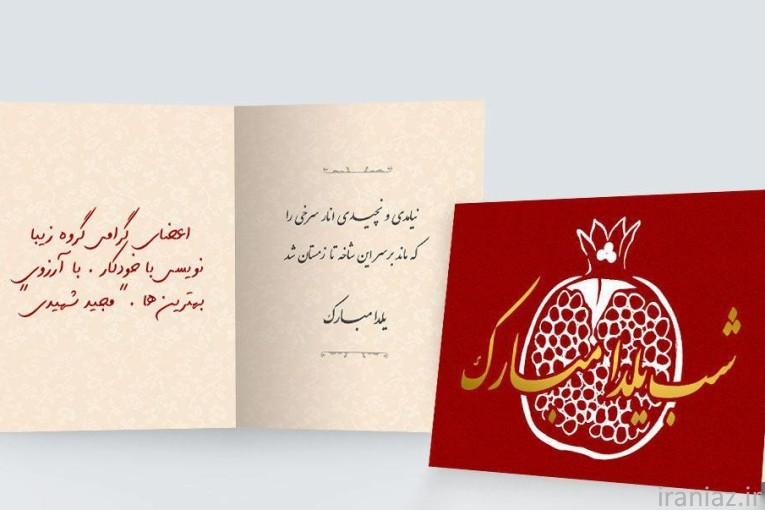 اعضای گرامی گروه زیبا
نویسی با خودکار. با آرزوی
بهترین‌ها. "مجید شهیدی"
نیامدی و نچیدی انار سرخی را
که ماند بر سر این شاخه تا زمستان شد
یلدا مبارک
شب یلدا مبارک
iraniaz.ir